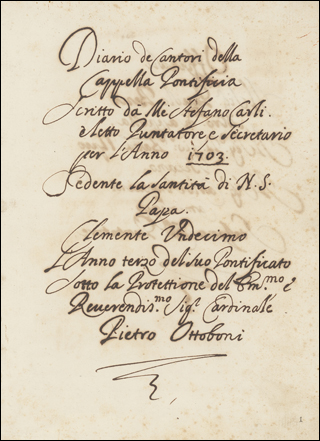 Diario de Cantori della
Cappella Pontificia
Scritto da Me Stefano Carli
eletto Puntatore e Secretario
per l'Anno 1703.
Sedente la Santità di N. S.
Papa.
Clemente Undecimo
L'Anno terzo del suo Pontificato
Sotto la Protettione del Em.mo e
Reverendis.mo Sig.r Cardinale
Pietro Ottoboni